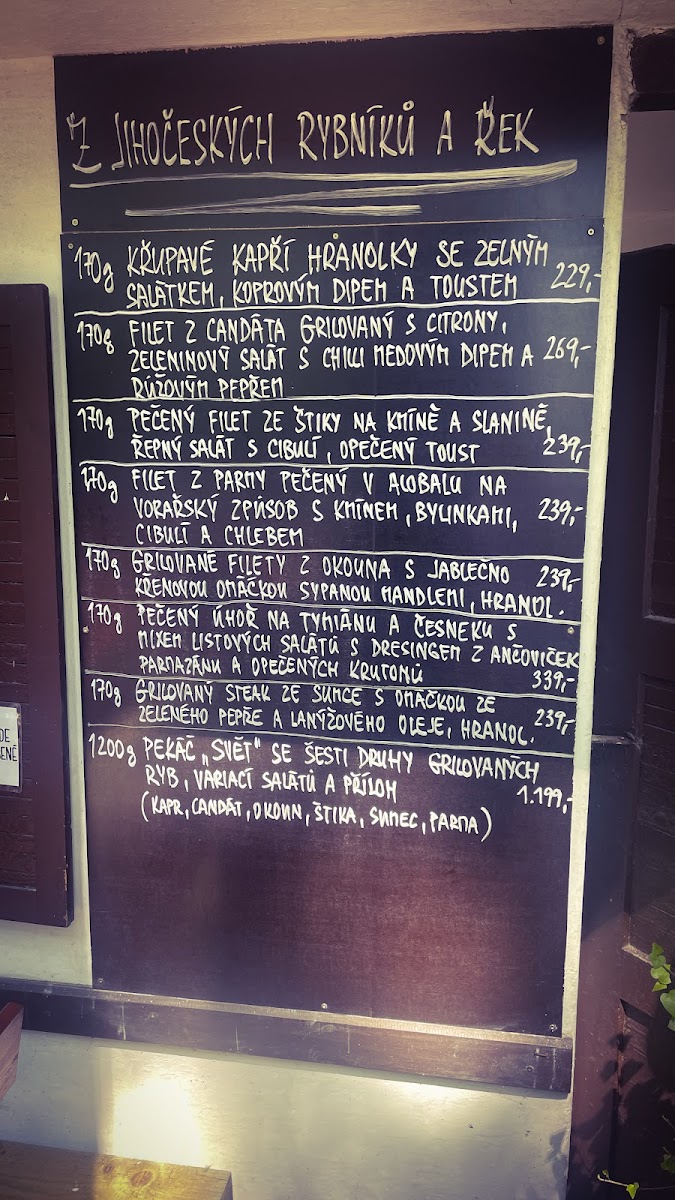 Z JIHOČESKÝCH RYBNÍKŮ A ŘEK
170g KŘUPAVÉ KAPŘÍ HRANOLKY SE ZELNÝM
SALÁTKEM, KOPROVÝM DIPEM A TOUSTEM 229,-
170g FILET Z CANDÁTA GRILOVANÝ S CITRONY,
ZELENINOVÝ SALÁT S CHILLI MEDOVÝM DIPEM A 269,-
RŮŽOVÝM PEPŘEM
170g PEČENÝ FILET ZE ŠTIKY NA KMÍNĚ A SLANINĚ,
ŘEPNÝ SALÁT S CIBULÍ, OPEČENÝ TOUST 239,-
170g FILET Z PARMY PEČENÝ V ALOBALU NA
VORAŘSKÝ ZPŮSOB S KMÍNEM, BYLINKAMI, 239,-
CIBULÍ A CHLEBEM
170g GRILOVANÉ FILETY Z OKOUNA S JABLEČNO 239,-
KŘENOVOU OMÁČKOU SYPANOU MANDLEMI, HRANOL.
170g PEČENÝ ÚHOŘ NA TYMIÁNU A ČESNEKU S
MIXEM LISTOVÝCH SALÁTŮ S DRESINGEM Z ANČOVIČEK
PARMAZÁNU A OPEČENÝCH KRUTONŮ 339,-
170g GRILOVANÝ STEAK ZE SUMCE S OMÁČKOU ZE
ZELENÉHO PEPŘE A LANÝŽOVÉHO OLEJE, HRANOL. 239,-
1200g PEKÁČ „SVĚT" SE ŠESTI DRUHY GRILOVANÝCH
RYB, VARIACÍ SALÁTŮ A PŘÍLOH 1.199,-
(KAPR, CANDÁT, OKOUN, ŠTIKA, SUMEC, PARMA)